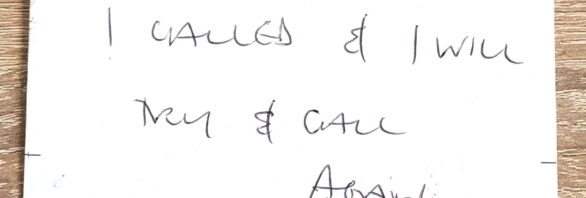 I CALLED & I WILL
TRY & CALL
AGAIN